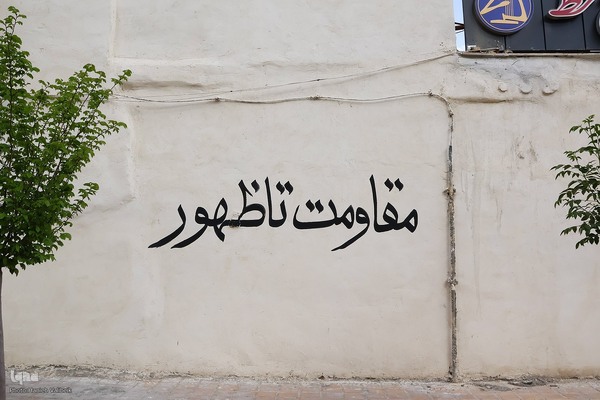 مقاومت تا ظهور